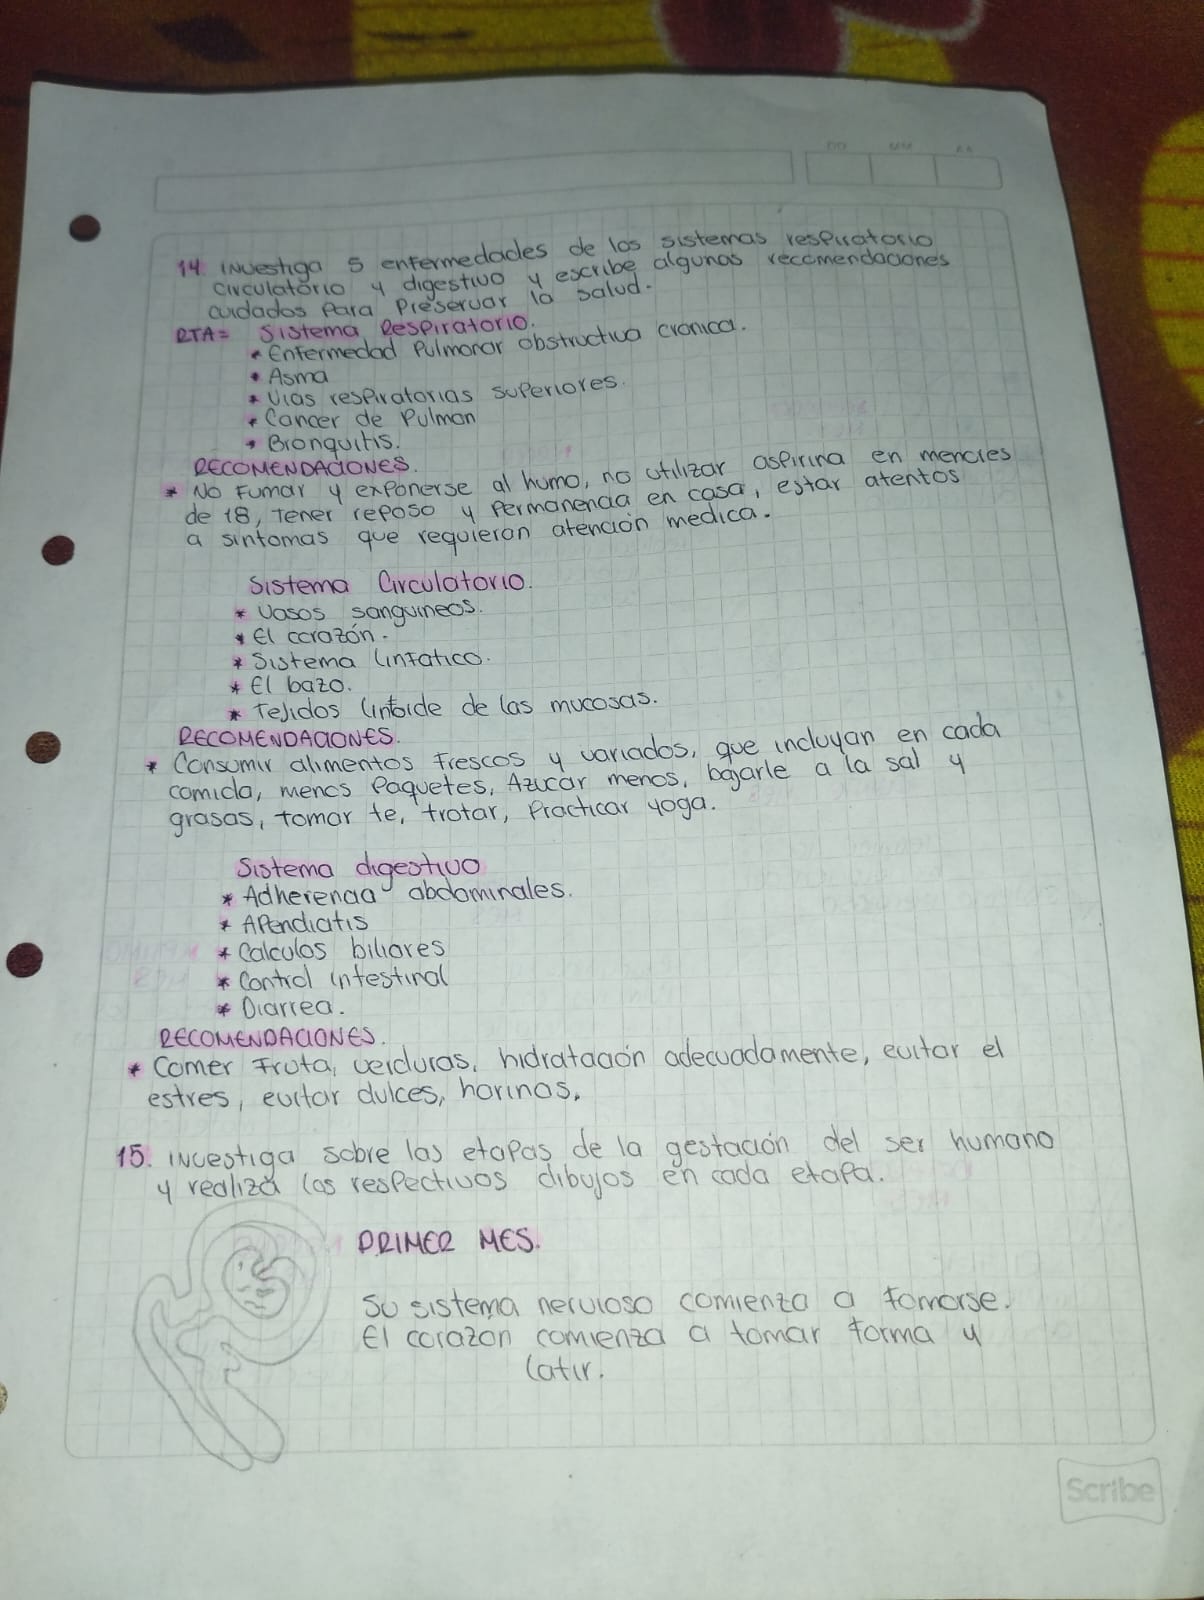 DD MM AA
14 investiga 5 enfermedades de los sistemas respiratorio
circulatorio y digestivo y escribe algunas recomendaciones
cuidados para preservar la salud.
RTA= Sistema Respiratorio.
* Enfermedad Pulmonar obstructiva cronica.
* Asma
* Vias respiratorias superiores.
* Cancer de Pulmon
* Bronquitis.
RECOMENDACIONES.
* No Fumar y exponerse al humo, no utilizar aspirina en menores
de 18, Tener reposo y Permanencia en casa, estar atentos
a sintomas que requieran atención medica.
Sistema Circulatorio.
* Vasos sanguineos.
* El corazón.
* Sistema linfatico.
* El bazo.
* Tejidos lintoide de las mucosas.
RECOMENDACIONES.
* Consumir alimentos frescos y variados, que incluyan en cada
comida, menos Paquetes, Azucar menos, bajarle a la sal y
grasas, tomar te, trotar, Practicar yoga.
Sistema digestivo
* Adherencia abdominales.
* Apendicitis
* Calculos biliares
* Control intestinal
* Diarrea.
RECOMENDACIONES.
* Comer Fruta, verduras, hidratación adecuadamente, evitar el
estres, evitar dulces, harinas.
15. investiga sobre las etapas de la gestación del ser humano
y realiza los respectivos dibujos en cada etapa.
PRIMER MES.
Su sistema nervioso comienza a fomarse.
El corazon comienza a tomar forma y
latir.
Scribe